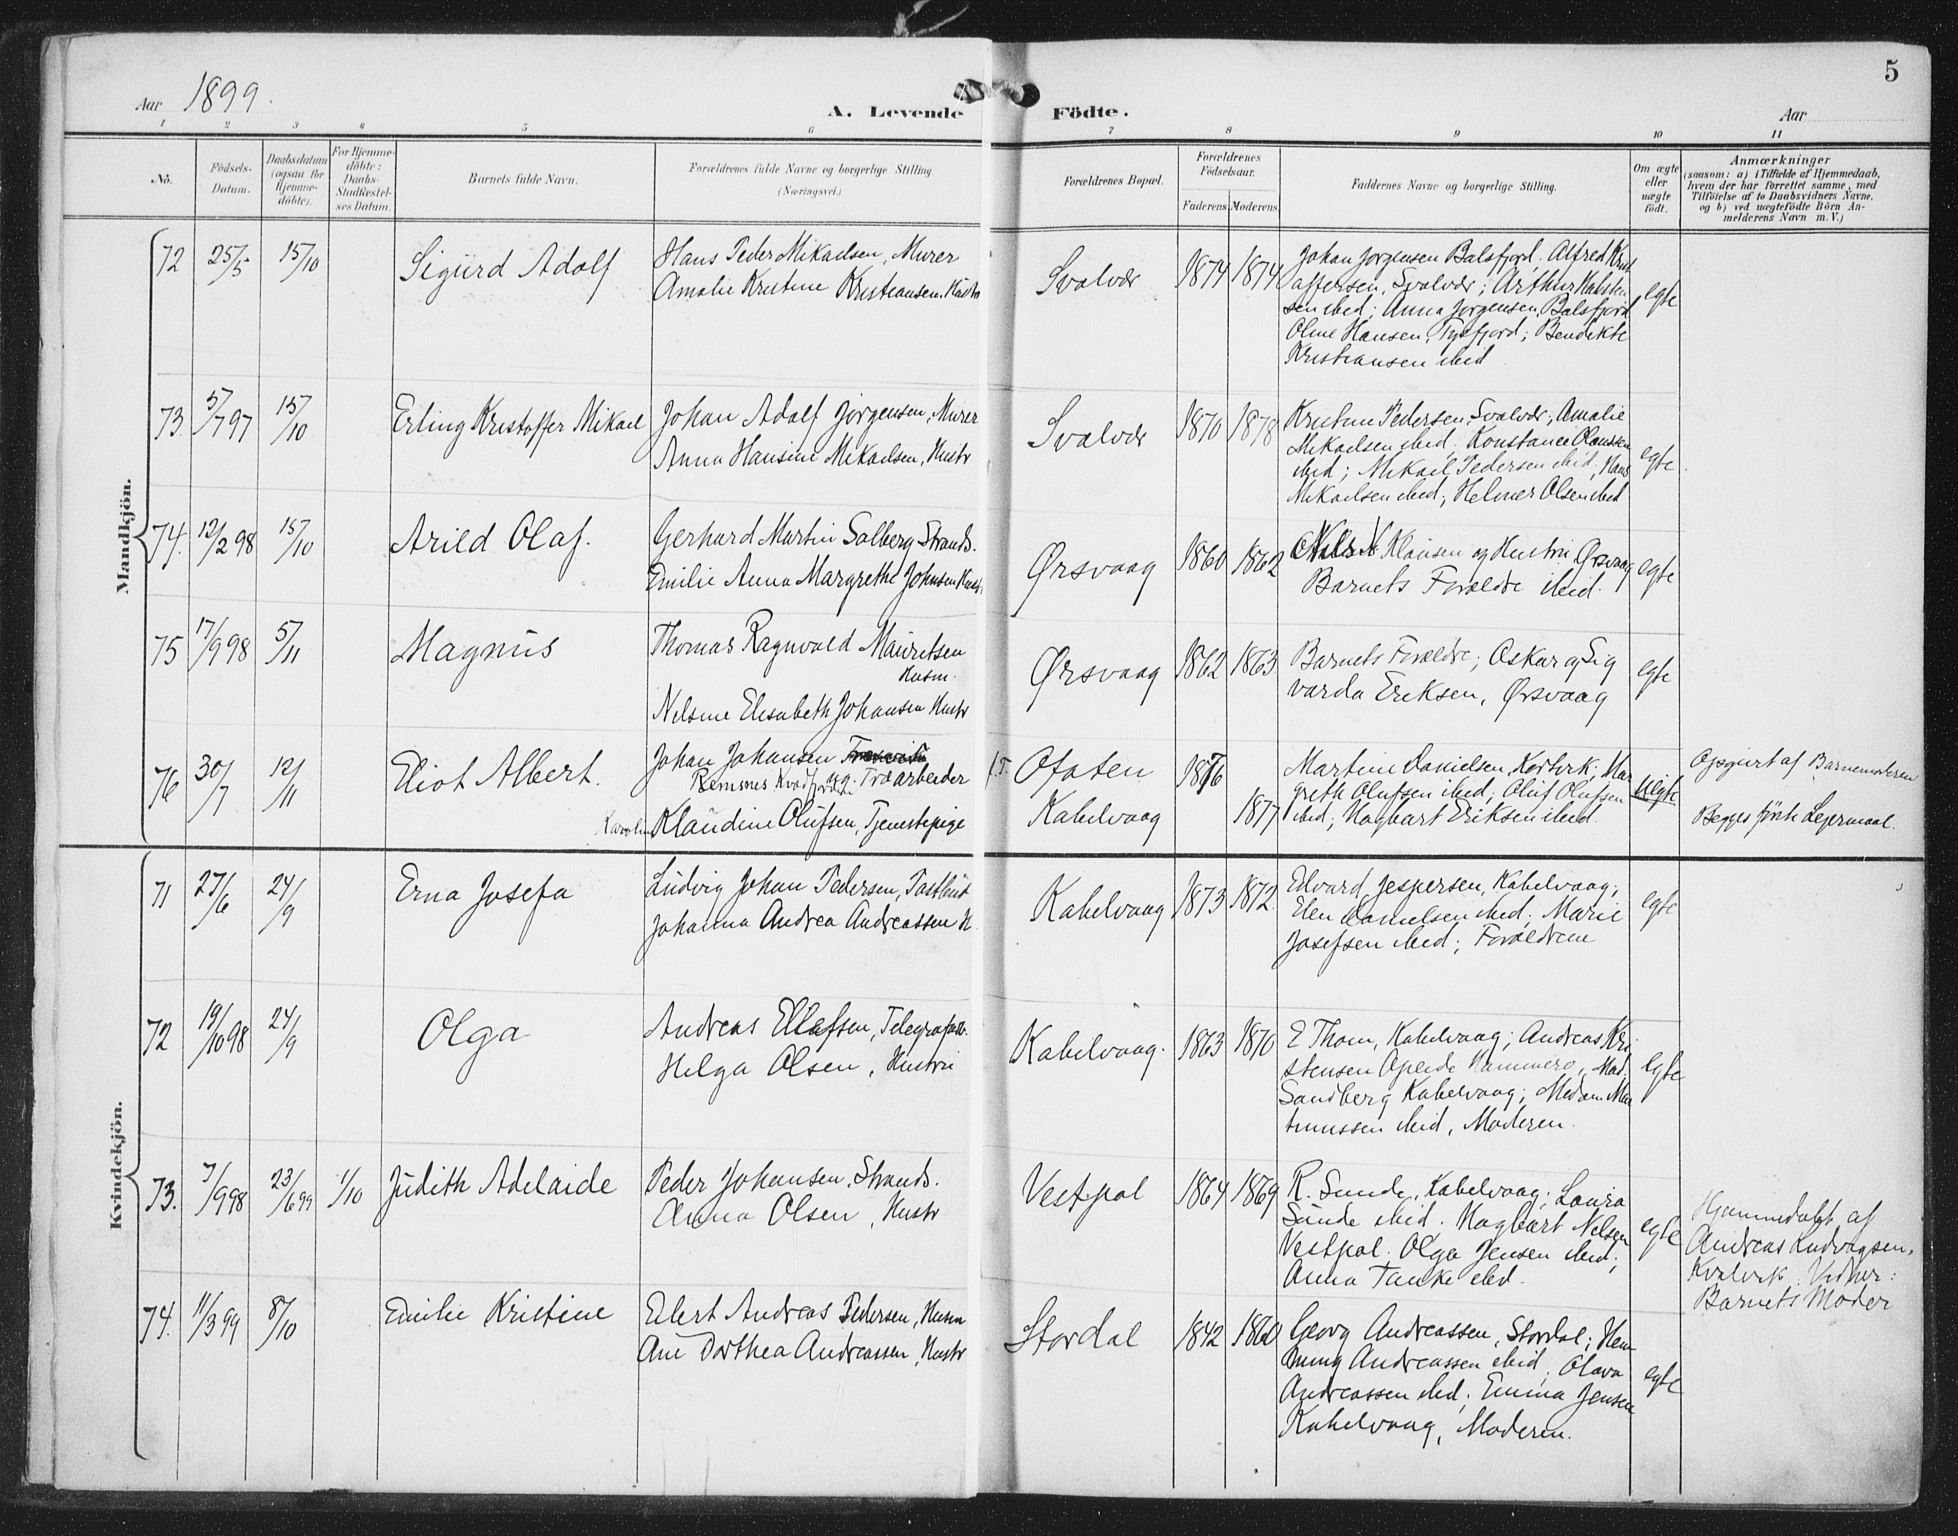 5
Aar 1899.
A. Levende Födte.
Aar
1 2 3 4 5 6 7 8 9 10 11
No.
Födsels-Datum.
Daabsdatum (ogsaa for Hjemme-döbte).
For Hjemme-döbte: Daabs-Stadfæstel-ses Datum.
Barnets fulde Navn.
Forældrenes fulde Navne og borgerlige Stilling. (Næringsvei.)
Forældrenes Bopæl.
Forældrenes Födselsaar.
Faderens
Moderens
Faddernes Navne og borgerlige Stilling.
Om ægte eller uægte födt.
Anmærkninger
(saasom: a) i Tilfælde af Hjemmedaab, hvem der har forrettet samme, med Tilföielse af to Daabsvidners Navne, og b) ved uægtefödte Börn An-melderens Navn m. V.)
Mandkjön.
72 25/5 15/10 Sigurd Adolf
Hans Peder Mikaelsen, Murer
Amalie Kristine Kristiansen, Hustr
Svolvær 1874 1874
Johan Jorgensen Balsfjord, Alfred Krist
offersen, Svolvær; Arthur
sen ibid; Anna Jorgensen, Balsfjord
Oline Hansen, Tysfjord; Bendikte
Kristiansen ibid
egte
73. 5/7 97 15/10 Erling Kristoffer Mikael
Johan Adolf Jørgensen, Murer
Anna Hansine Mikaelsen, Hustr
Svolvær 1870 1878
Kristine Pedersen, Svolvær; Amalie
Mikaelsen ibid, Konstance Olaussen
ibid; Mikael Pedersen ibid; Hans
Mikaelsen ibid; Helmer Olsen ibid
egte
74. 12/2 98 15/10 Arild Olaf.
Gerhard Martin Solberg Strands.
Emilie Anna Margrethe Johnsen Hustr
Ørsvaag 1860 1862
Klausen og Hustru Ørsvaag
Barnets Forældre ibid.
egte
75 17/9 98 5/11 Magnus
Thomas Ragnvald Mauritsen
Husm.
Nilsine Elisabeth Johansen Hustr
Ørsvaag 1862 1863
Barnets Forældre; Oskar og Sig
varda Eriksen, Ørsvaag
egte
76 30/7 12/11 Eliot Albert.
Johan Johansen
Remsnes Kvædfjord Træarbeider
Klaudine Olufsen, Tjenestepige
Ofoten
Kabelvaag
1876
1877
Martine Danielsen, ; Mar
grethe Olufsen ibid; Oluf Olufsen
ibid; Hagbart Eriksen ibid.
uegte
Opgivet af Barnemoderen
Begges förste Lejermaal.
Kvindekjön.
71 27/6 24/9 Erna Josefa
Ludvig Johan Pedersen,
Johanna Andrea Andreassen H.
Kabelvaag 1873 1872
Edvard Jespersen, Kabelvaag;
Elen Danielsen ibid; Marie
Josefsen ibid; Forældrene
egte
72 19/10 98 24/9 Olga
Andreas Ellefsen, Telegrafarb.
Helga Olsen, Hustru
Kabelvaag. 1863 1870
E Thom, Kabelvaag; Andreas Kri
stensen Hammerø, Mad.
Sandberg Kabelvaag; Madam Mar
tinussen ibid, Moderen.
egte
73. 7/9 98 23/6 99 1/10 Judith Adelaide
Peder Johansen, Strands.
Anna Olsen, Hustr
Vestpol 1864 1869
R. Sunde, Kabelvaag; Laura
Sunde ibid. Hagbart Nilsen
Vestpol. Olga Jensen ibid;
Anna Tanke ibid.
egte
Hjemmedøbt af
Andreas Ludvigsen,
Kvalvik. Vidner:
Barnets Moder
74. 11/3 99 8/10 Emilie Kristine
Elert Andreas Pedersen, Husm
Ane Dorthea Andreassen, Hustr
Stordal 1842 1860
Georg Andreassen, Stordal; Hem
ming Andreassen ibid; Olava
Andreassen ibid; Emma Jensen
Kabelvaag, Moderen.
egte